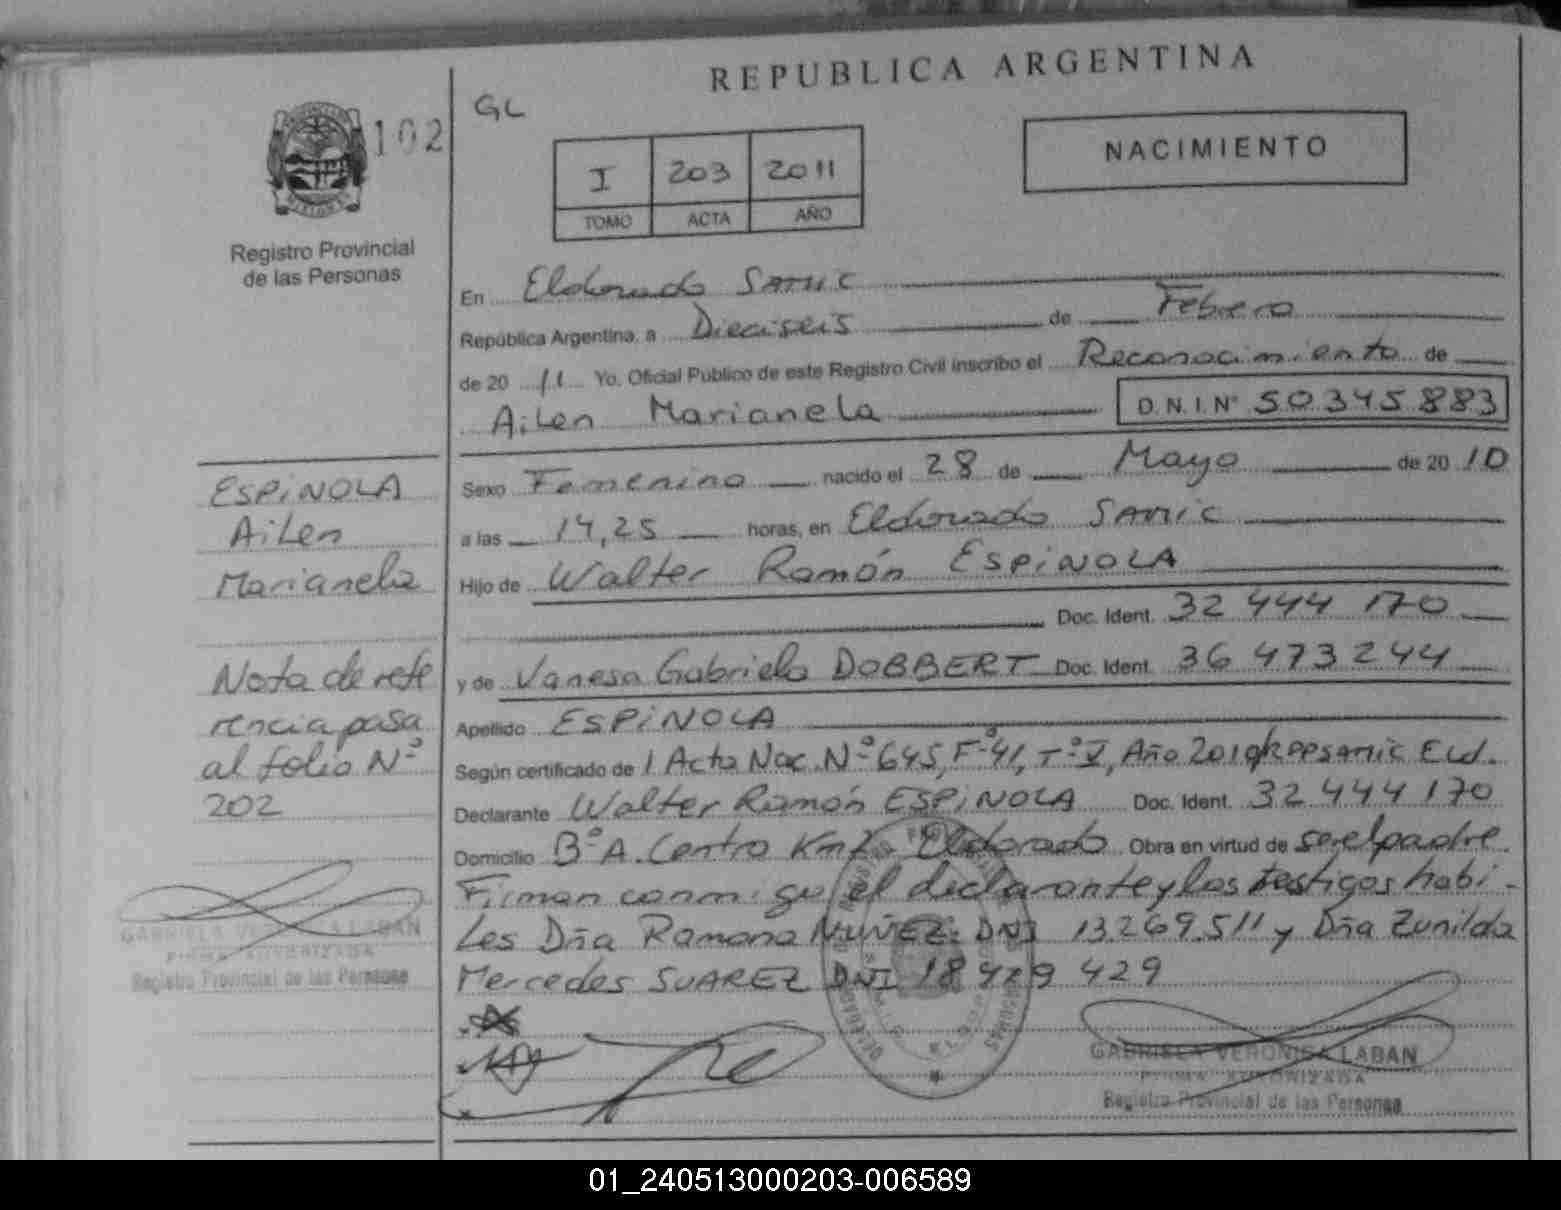 REPUBLICA ARGENTINA
102
GL
NACIMIENTO
I 203 2011
TOMO ACTA AÑO
Registro Provincial
de las Personas
En Eldorado SAMIC
República Argentina, a Dieciseis de Febrero
de 20 11 Yo, Oficial Público de este Registro Civil inscribo el Reconocimiento de
Ailen Marianela D.N.I. Nº 50.345.883
Sexo Femenino nacido el 28 de Mayo de 20 10
a las 14,25 horas, en Eldorado SAMIC
Hijo de Walter Ramón ESPINOLA
Doc. Ident. 32 444 170
y de Vanesa Gabriela DOBBERT Doc. Ident. 36 473 244
Apellido ESPINOLA
Según certificado de 1 Acta Nac. Nº 645, Fº 41, Tº V, Año 2010 RPPSAMIC Eld.
Declarante Walter Ramón ESPINOLA Doc. Ident. 32 444 170
Domicilio Bº A. Centro Km 2 Eldorado Obra en virtud de ser el padre.
Firman conmigo el declarante y los testigos habi-
les Dña Ramona NUÑEZ DNI 13.269.511 y Dña Zunilda
Mercedes SUAREZ DNI 18 429 429
ESPINOLA
Ailen
Marianela
Nota de refe
rencia pasa
al folio Nº
202
GABRIELA VERONICA LABAN
FIRMA AUTORIZADA
Registro Provincial de las Personas
GABRIELA VERONICA LABAN
FIRMA AUTORIZADA
Registro Provincial de las Personas
01_240513000203-006589